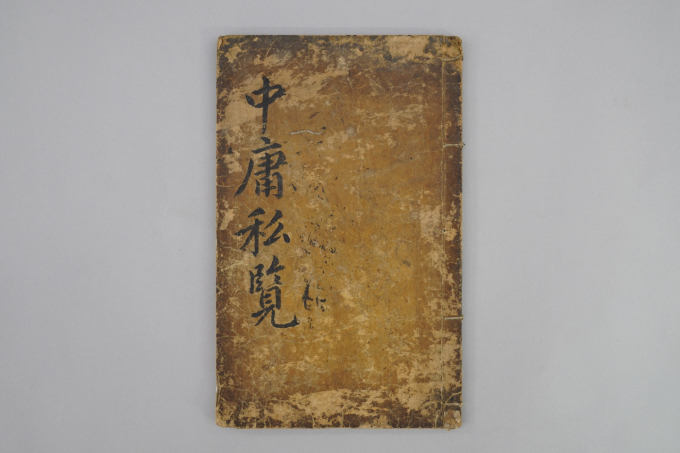 中庸私覽